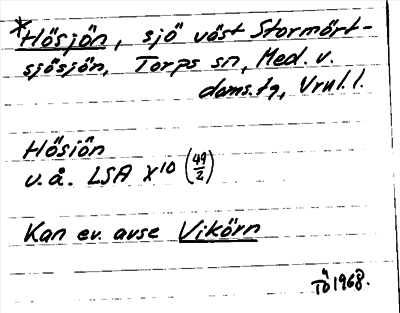 *Hösjön, sjö väst Stormört-
sjösjön, Torps sn, Med. v.
doms.tg, Vrul.l.
Hösjön
u.å. LSA X10 (49/2)
Kan ev. avse Vikörn
1968.